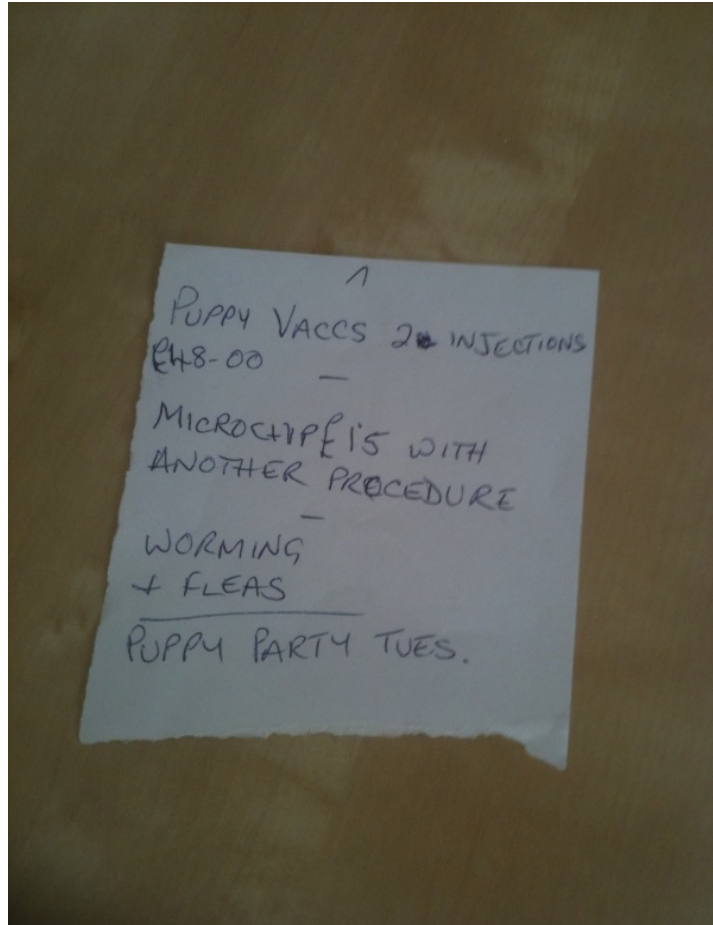 PUPPY VACCS 2 INJECTIONS
£48-00
—
MICROCHIP £15 WITH
ANOTHER PROCEDURE
—
WORMING
+ FLEAS
PUPPY PARTY TUES.